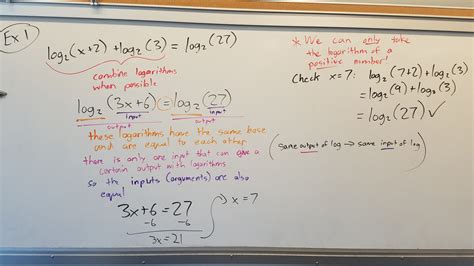 Ex 1
log₂(x+2) + log₂(3) = log₂(27)
combine logarithms
when possible
log₂(3x+6) = log₂(27)
input input
output output
these logarithms have the same base
and are equal to each other
there is only one input that can give a
certain output with logarithms
so the inputs (arguments) are also
equal
3x+6 = 27
-6 -6
3x = 21
→ x = 7
* We can only take
the logarithm of a
positive number!
Check x=7: log₂(7+2) + log₂(3)
= log₂(9) + log₂(3)
= log₂(27) ✓
(same output of log → same input of log)